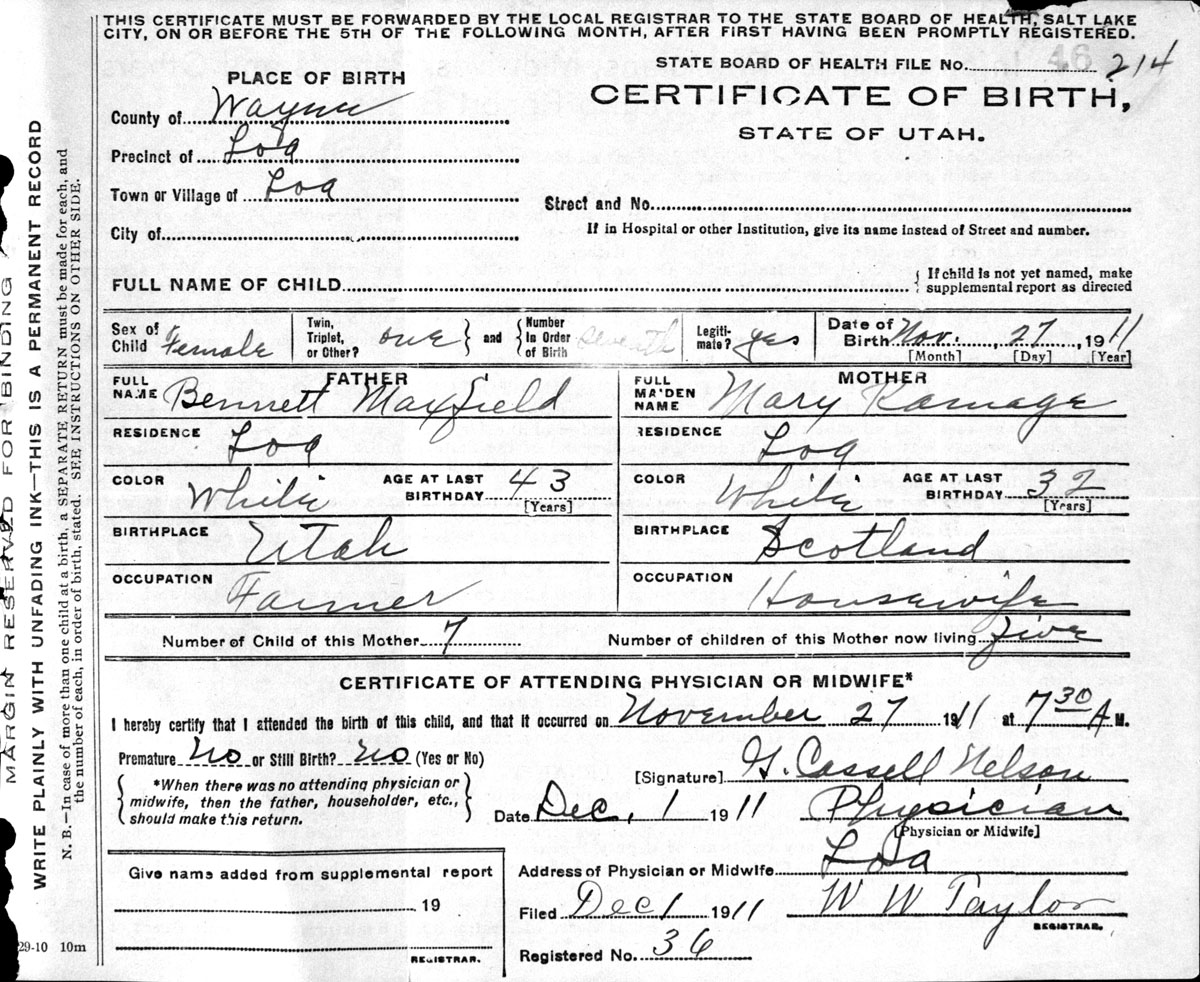 THIS CERTIFICATE MUST BE FORWARDED BY THE LOCAL REGISTRAR TO THE STATE BOARD OF HEALTH, SALT LAKE
CITY, ON OR BEFORE THE 5TH OF THE FOLLOWING MONTH, AFTER FIRST HAVING BEEN PROMPTLY REGISTERED.
STATE BOARD OF HEALTH FILE NO. 46 214
CERTIFICATE OF BIRTH,
STATE OF UTAH.
PLACE OF BIRTH
County of Wayne
Precinct of Loa
Town or Village of Loa
City of
Street and No.
If in Hospital or other Institution, give its name instead of Street and number.
FULL NAME OF CHILD
{ If child is not yet named, make
supplemental report as directed
Sex of Child Female
Twin, Triplet, or Other? one } and { Number In Order of Birth seventh
Legitimate? yes
Date of Birth Nov. 27, 1911
[Month] [Day] [Year]
FATHER
FULL NAME Bennett Maxfield
RESIDENCE Loa
COLOR White AGE AT LAST BIRTHDAY 43
[Years]
BIRTHPLACE Utah
OCCUPATION Farmer
MOTHER
FULL MAIDEN NAME Mary Ramage
RESIDENCE Loa
COLOR White AGE AT LAST BIRTHDAY 32
[Years]
BIRTHPLACE Scotland
OCCUPATION Housewife
Number of Child of this Mother 7 Number of children of this Mother now living five
CERTIFICATE OF ATTENDING PHYSICIAN OR MIDWIFE*
I hereby certify that I attended the birth of this child, and that it occurred on November 27 1911 at 7 30 A M.
Premature No or Still Birth? No (Yes or No)
{ *When there was no attending physician or
midwife, then the father, householder, etc.,
should make this return. }
[Signature] G. Cassell Nelson
Date Dec, 1 1911 Physician
[Physician or Midwife]
Address of Physician or Midwife Loa
Filed Dec 1 1911 W W Taylor
REGISTRAR.
Registered No. 36
Give name added from supplemental report
19
REGISTRAR.
29-10 10m
MARGIN RESERVED FOR BINDING
WRITE PLAINLY WITH UNFADING INK—THIS IS A PERMANENT RECORD
N. B.—In case of more than one child at a birth, a SEPARATE RETURN must be made for each, and
the number of each, in order of birth, stated. SEE INSTRUCTIONS ON OTHER SIDE.